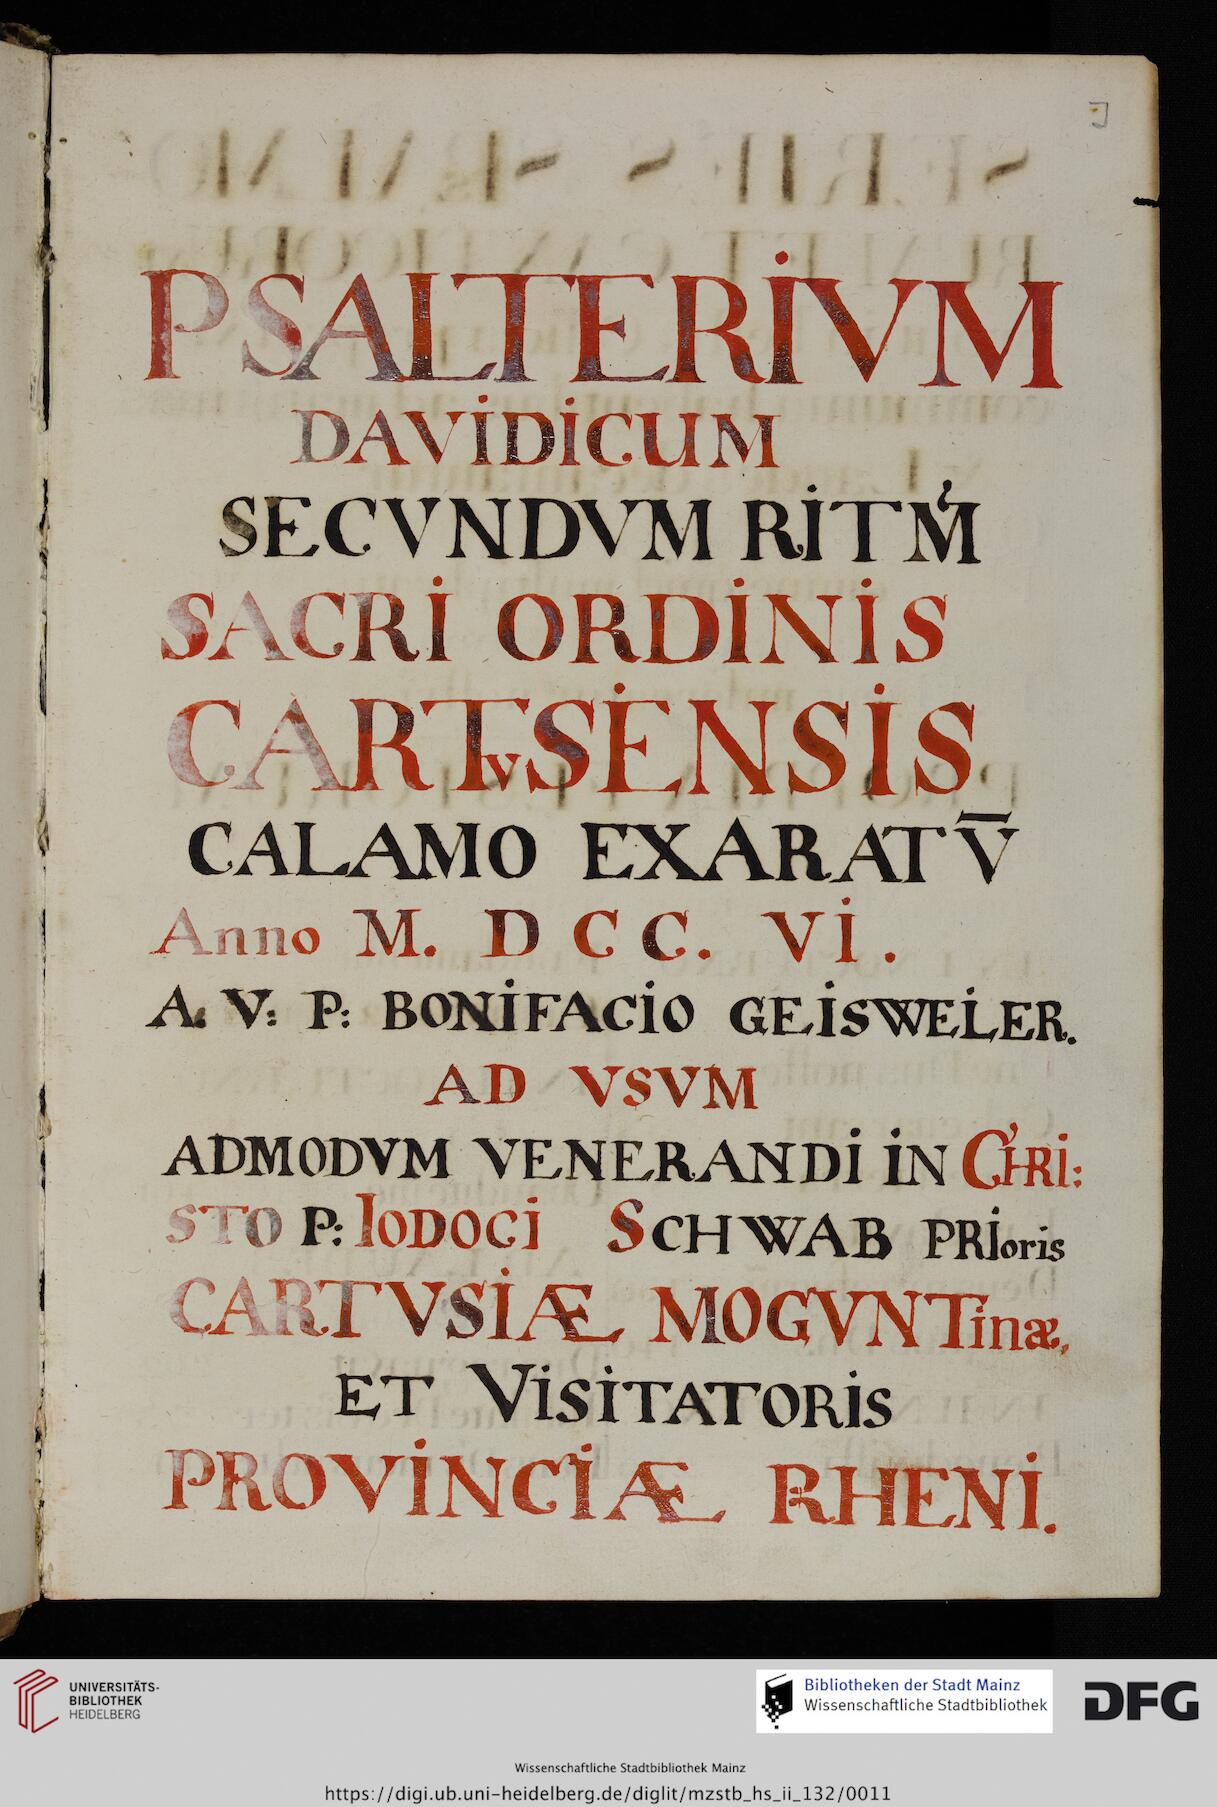 PSALTERiVM
DAViDiCUM
SECVNDVM RiTM̓
SACRi ORDiNiS
CARTvSiENSiS
CALAMO EXARATV̄
Anno M. D C C. Vi.
A: V: P: BONiFACiO GEiSWEiLER.
AD VSVM
ADMODVM VENERANDi iN CHRi:
STO P: IODOCi SCHWAB PRIoris
CARTVSiÆ MOGVNTinæ,
ET ViSiTATORiS
PROViNCiÆ RHENi.
UNIVERSITÄTS-
BIBLIOTHEK
HEIDELBERG
Bibliotheken der Stadt Mainz
Wissenschaftliche Stadtbibliothek
DFG
Wissenschaftliche Stadtbibliothek Mainz
https://digi.ub.uni-heidelberg.de/diglit/mzstb_hs_ii_132/0011